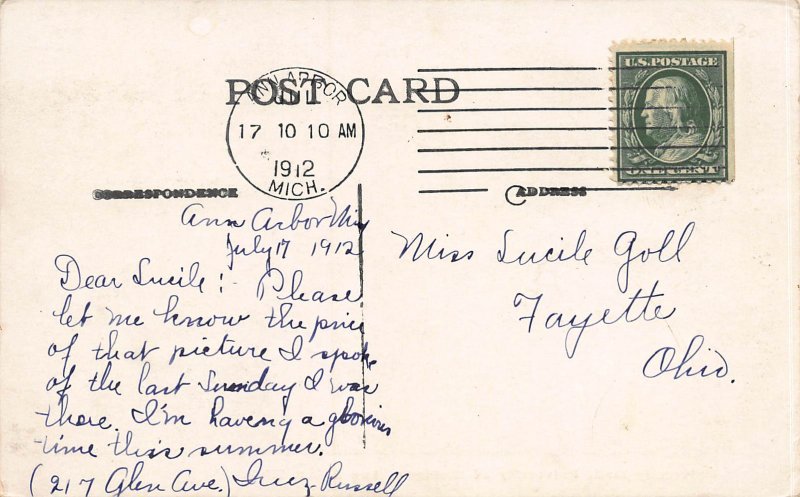 POST CARD
ANN ARBOR
17 10 10 AM
1912
MICH.
U.S. POSTAGE
ONE CENT
CORRESPONDENCE
ADDRESS
Ann Arbor Mich
July 17 1912
Dear Lucile: Please
let me know the price
of that picture I spoke
of the last Sunday I was
there. I'm haveing a glorious
time this summer.
(217 Glen Ave.) Inez Russell
Miss Lucile Goll
Fayette
Ohio.